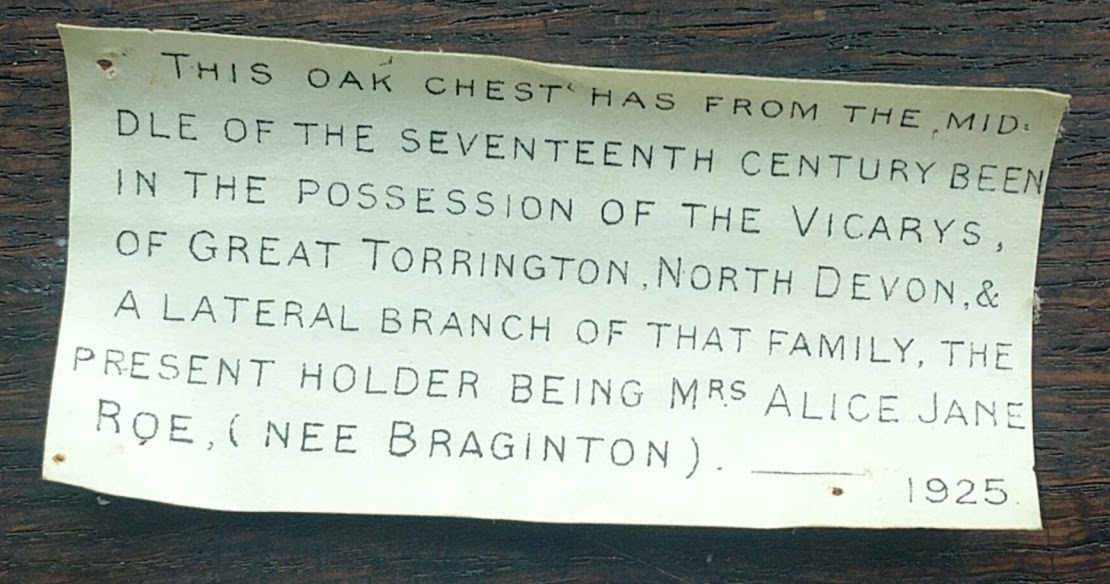 THIS OAK CHEST HAS FROM THE MID-
DLE OF THE SEVENTEENTH CENTURY BEEN
IN THE POSSESSION OF THE VICARYS,
OF GREAT TORRINGTON, NORTH DEVON, &
A LATERAL BRANCH OF THAT FAMILY, THE
PRESENT HOLDER BEING MRS ALICE JANE
ROE, (NEE BRAGINTON). ——— 1925.